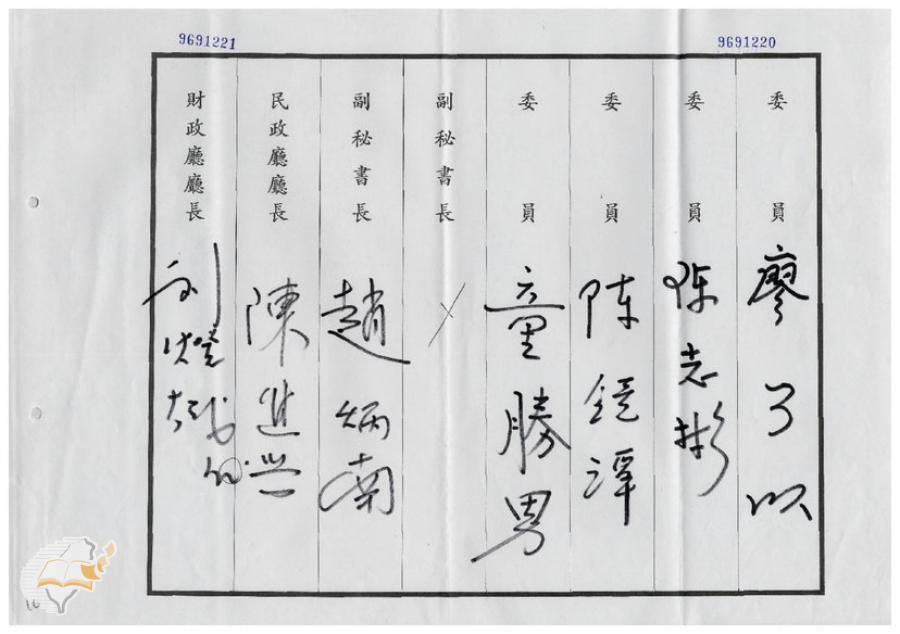 9691221
9691220
委員 廖了以
委員 陳志彬
委員 陳鏡潭
委員 童勝男
副秘書長 ×
副秘書長 趙炳南
民政廳廳長 陳進興
財政廳廳長 劉燈城